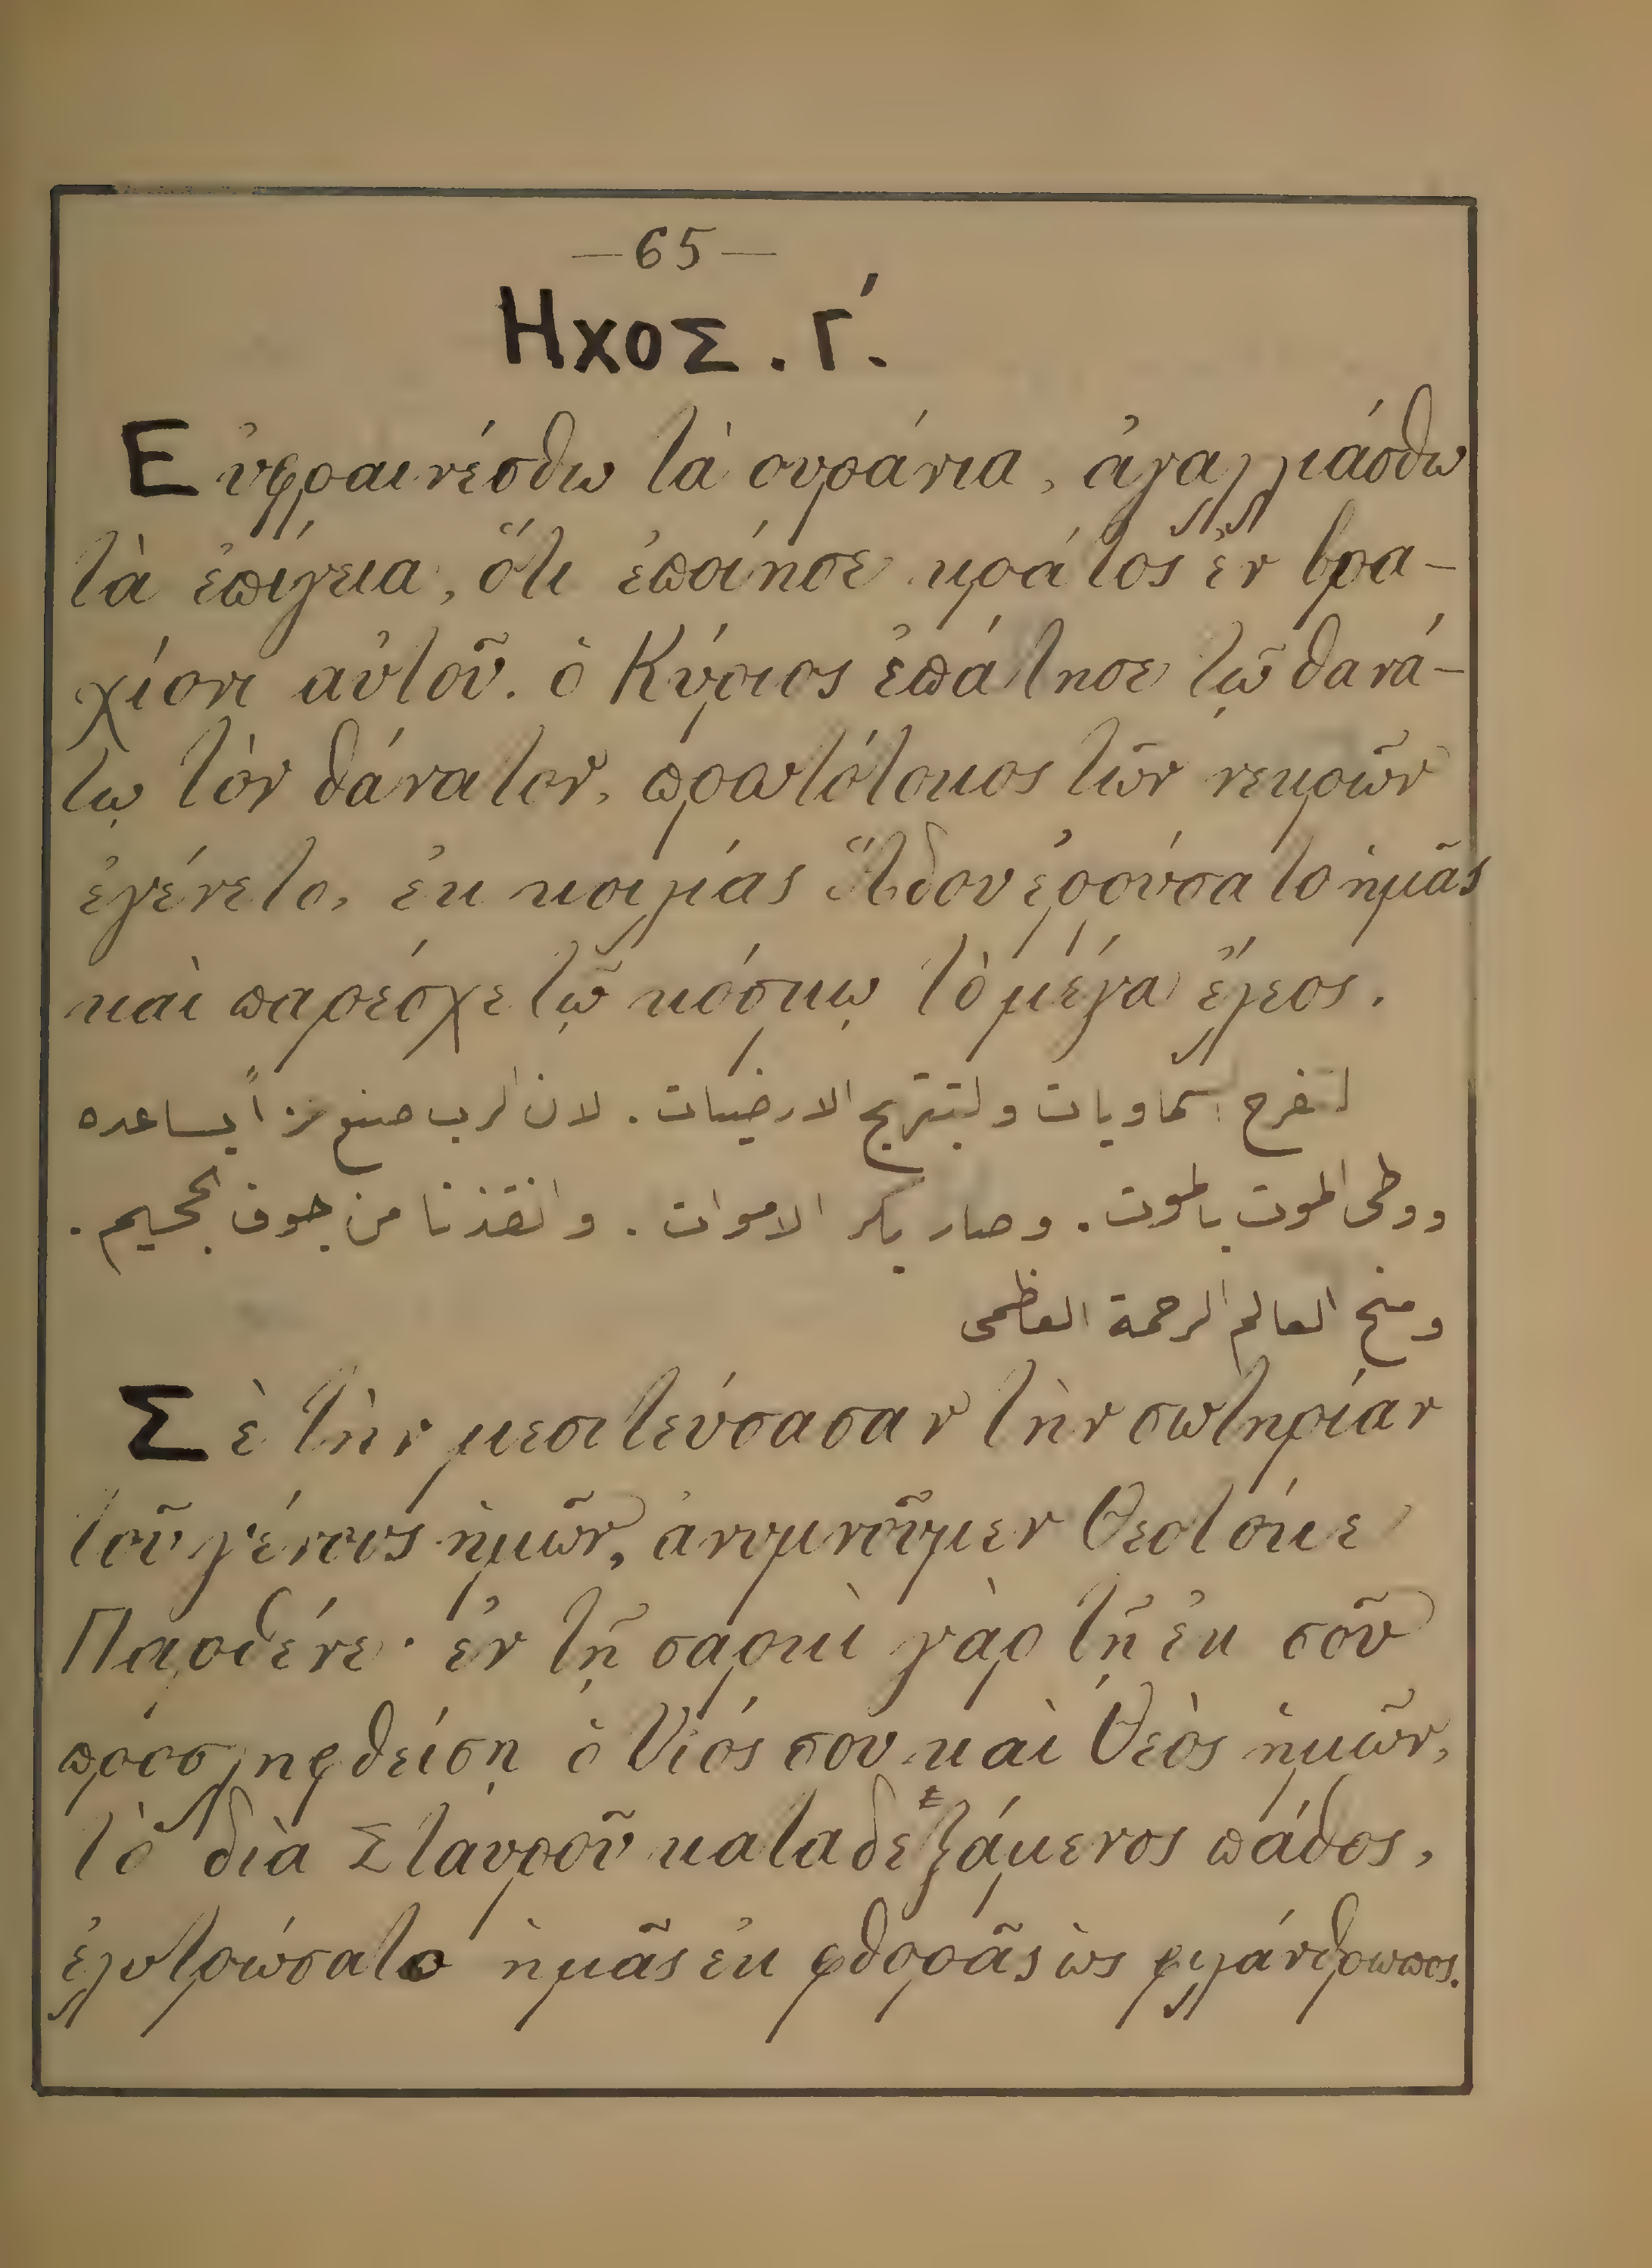 —65—
Ηχος. Γ΄.
Εὐφραινέσθω τὰ ουράνια, ἀγαλλιάσθω
τὰ ἐπίγεια, ὅτι ἐποίησε κράτος ἐν βρα-
χίονι αὐτοῦ. ὁ Κύριος ἐπάτησε τῷ θανά-
τῳ τὸν θάνατον, πρωτότοκος τῶν νεκρῶν
ἐγένετο, ἐκ κοιλίας ᾍδου ἐρρύσατο ἡμᾶς
καὶ παρέσχε τῷ κόσμῳ τὸ μέγα ἔλεος.
لتفرح السماويات ولتبتهج الارضيات. لان الرب صنع عزاً بساعده
ووطئ الموت بالموت. وصار بكر الاموات. وانقذنا من جوف الجحيم.
ومنح العالم الرحمة العظمى
Σὲ τὴν μεσιτεύσασαν τὴν σωτηρίαν
τοῦ γένους ἡμῶν, ἀνυμνοῦμεν Θεοτόκε
Παρθένε· ἐν τῇ σαρκὶ γὰρ τῇ ἐκ σοῦ
προσληφθείσῃ ὁ Υἱός σου καὶ Θεὸς ἡμῶν,
τὸ διὰ Σταυροῦ καταδεξάμενος πάθος,
ἐλυτρώσατο ἡμᾶς ἐκ φθορᾶς ὡς φιλάνθρωπος.